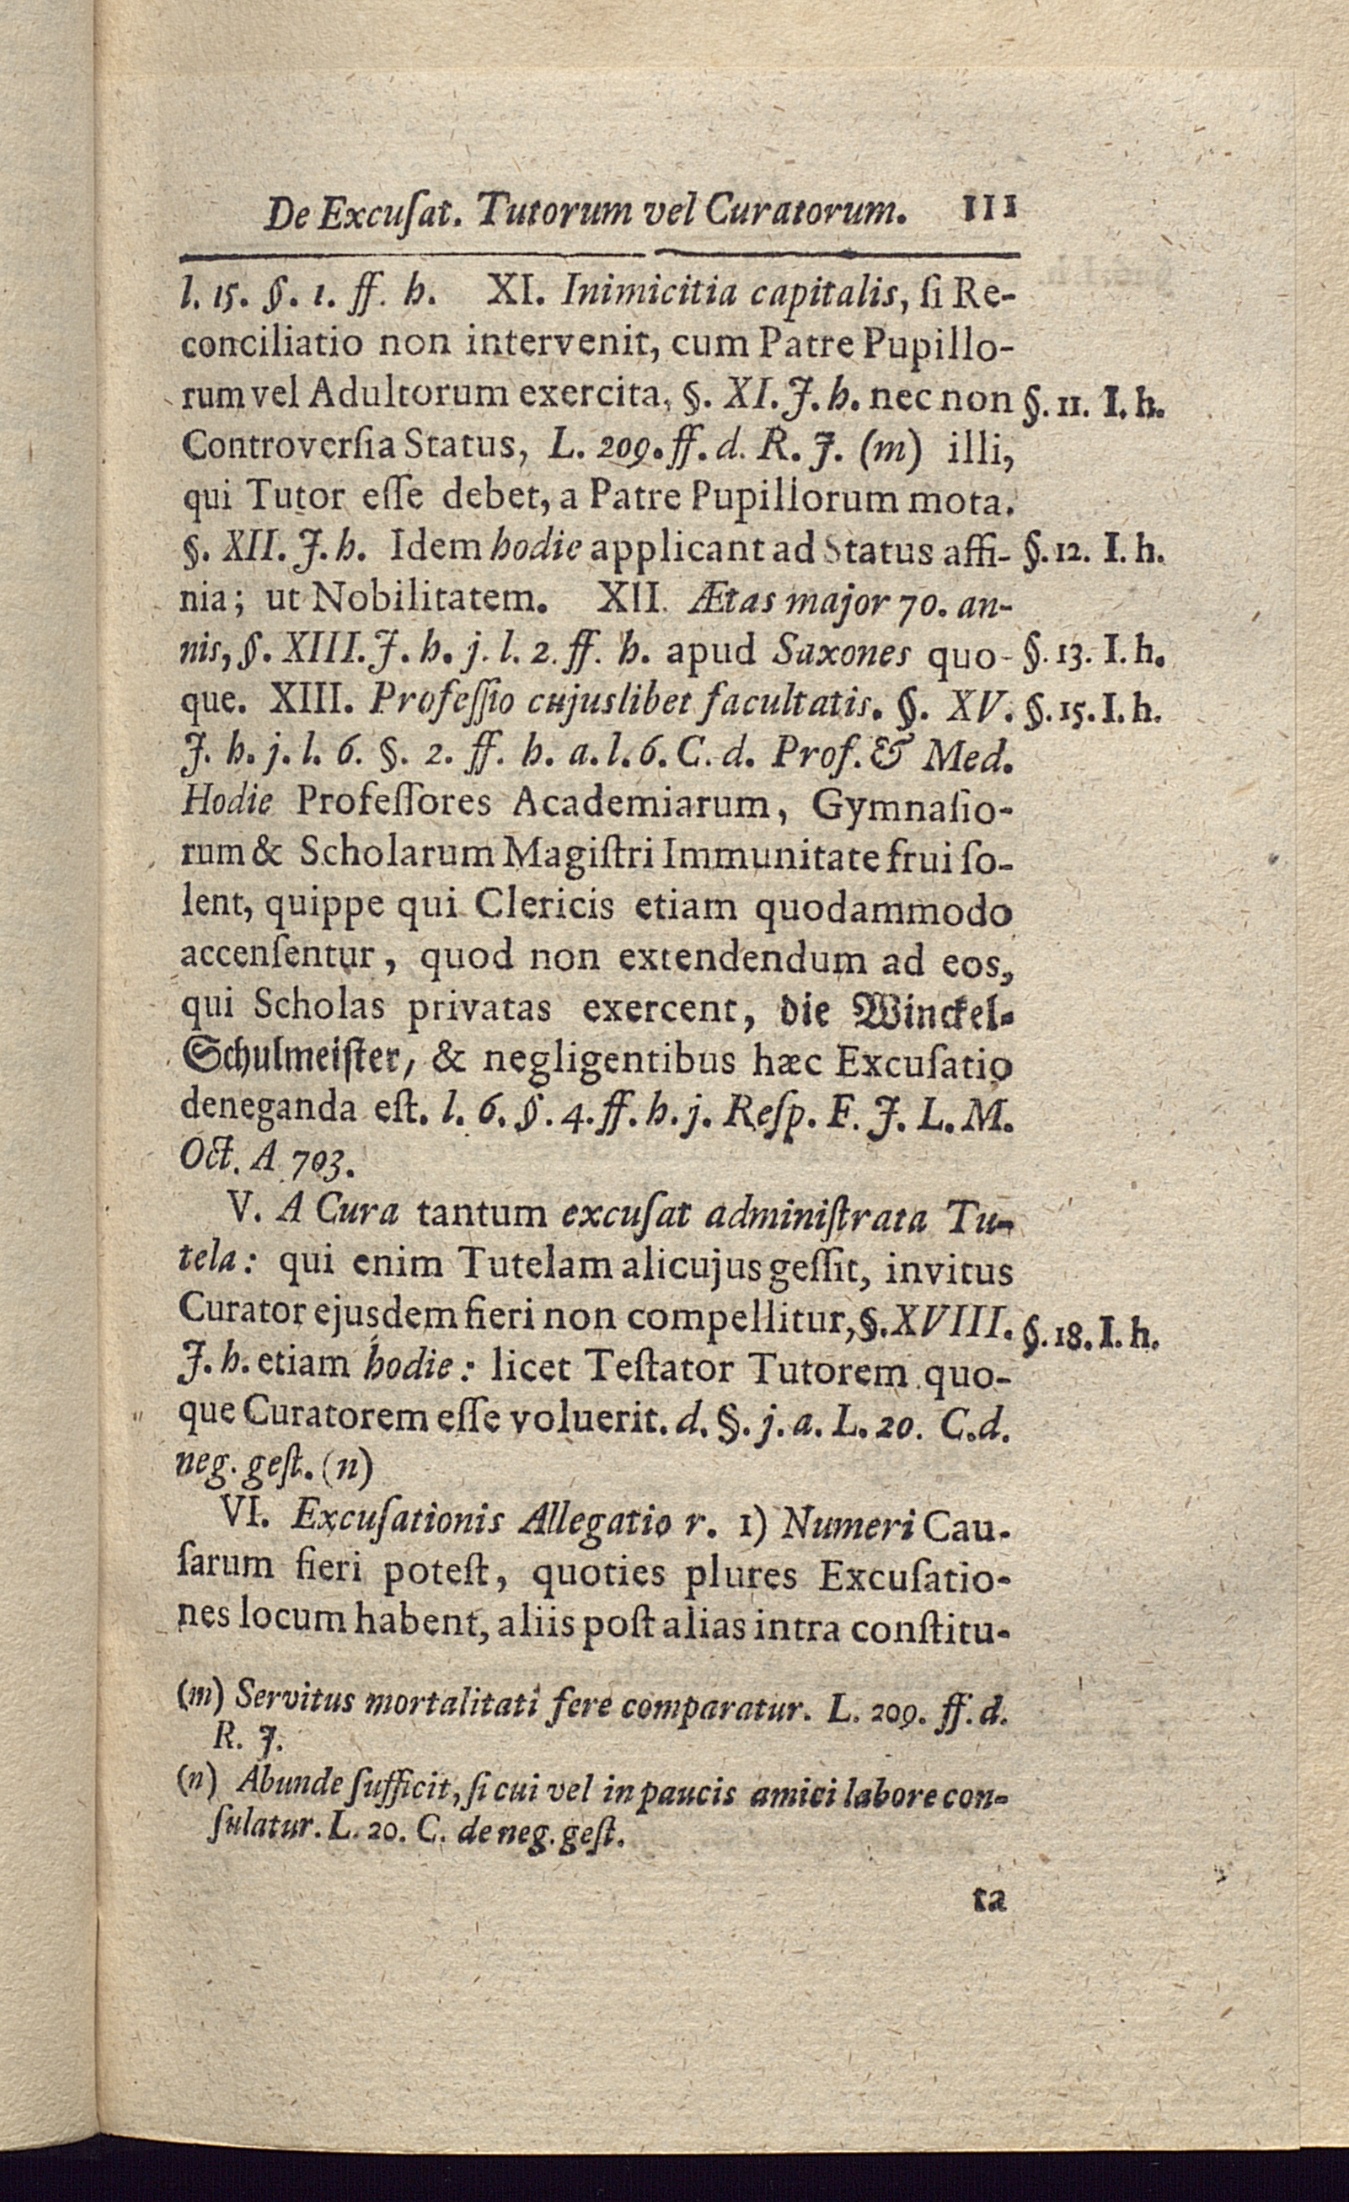 De Excuſat. Tutorum vel Curatorum. 111
l. 15. §. 1. ff. h. XI. Inimicitia capitalis, ſi Re-
conciliatio non intervenit, cum Patre Pupillo-
rum vel Adultorum exercita, §. XI. J. h. nec non §. 11. I. h.
Controverſia Status, L. 209. ff. d. R. J. (m) illi,
qui Tutor eſſe debet, a Patre Pupillorum mota.
§. XII. J. h. Idem hodie applicant ad Status affi- §. 12. I. h.
nia; ut Nobilitatem. XII. Ætas major 70. an-
nis, §. XIII. J. h. j. l. 2. ff. h. apud Saxones quo- §. 13. I. h.
que. XIII. Profeſſio cujuslibet facultatis. §. XV. §. 15. I. h.
J. h. j. l. 6. §. 2. ff. h. a. l. 6. C. d. Prof. & Med.
Hodie Profeſſores Academiarum, Gymnaſio-
rum & Scholarum Magiſtri Immunitate frui ſo-
lent, quippe qui Clericis etiam quodammodo
accenſentur, quod non extendendum ad eos,
qui Scholas privatas exercent, die Winckel-
Schulmeiſter, & negligentibus hæc Excuſatio
deneganda eſt. l. 6. §. 4. ff. h. j. Reſp. F. J. L. M.
Oct. A 703.
V. A Cura tantum excuſat adminiſtrata Tu-
tela: qui enim Tutelam alicujus geſſit, invitus
Curator ejusdem fieri non compellitur, §. XVIII. §. 18. I. h.
J. h. etiam hodie: licet Teſtator Tutorem quo-
que Curatorem eſſe voluerit. d. §. j. a. L. 20. C. d.
neg. geſt. (n)
VI. Excuſationis Allegatio r. 1) Numeri Cau-
ſarum fieri poteſt, quoties plures Excuſatio-
nes locum habent, aliis poſt alias intra conſtitu-
(m) Servitus mortalitati fere comparatur. L. 209. ff. d.
R. J.
(n) Abunde ſufficit, ſi cui vel in paucis amici labore con-
ſulatur. L. 20. C. de neg. geſt.
ta